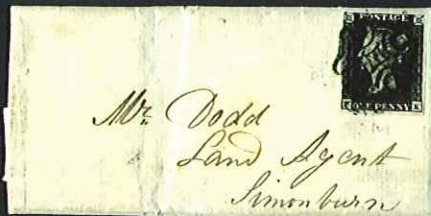 POSTAGE
ONE PENNY
Mr. Dodd
Land Agent
Simonburn